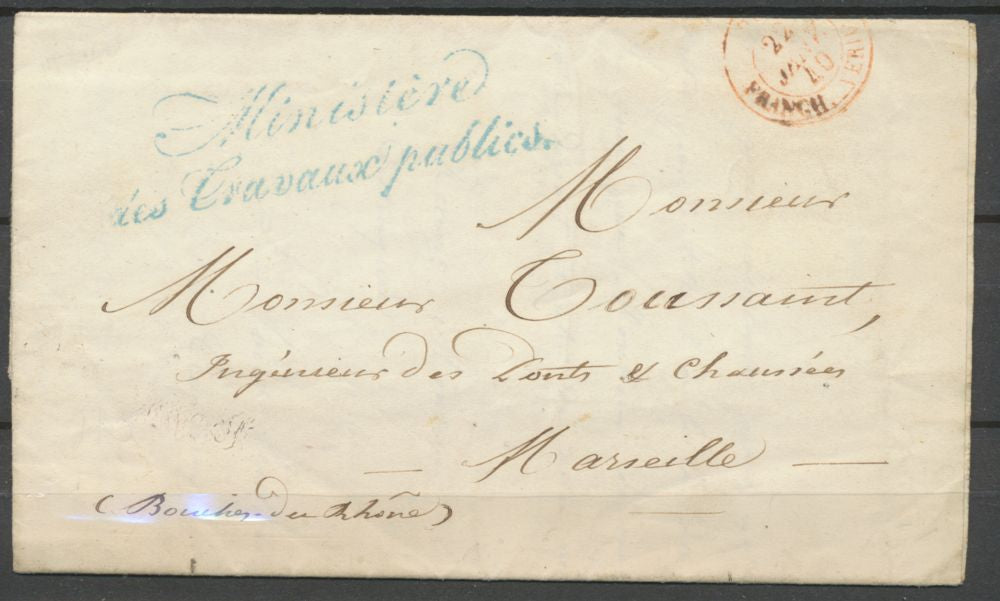 Ministère
des Travaux publics.
22
JANV
40
FRANCH.
Monsieur
Monsieur Toussaint,
Ingénieur des Ponts & Chaussées
Marseille
(Bouches du Rhône)